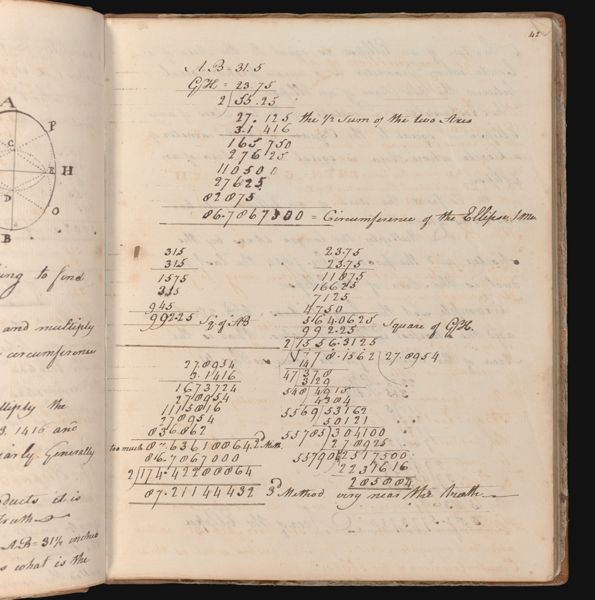 42
A
P
C
H
E
D
O
B
ing to find
and multiply
circumference
ltiply the
3.1416 and
early. Generally
oducts it is
Truth
AB = 31½ inches
s what is the
AB = 31.5
GH = 23.75
2 | 55.25
27.125 the ½ Sum of the two Axes
3.1416
165750
27625
110500
27625
82875
86.7867000 = Circumference of the Ellipsis 1 Me
315
315
1575
315
945
992.25 Sq. of AB
23.75
23.75
11875
16625
7125
4750
564.0625 Square of GH.
992.25
2 | 1556.3125
√778.1562 ( 27.8954
47 | 378
329
548 | 4915
4384
5569 | 53162
50121
55785 | 304100
278925
557904 | 2517500
2231616
285884
27.8954
3.1416
1673724
278954
1115816
278954
836862
too much 87.63618864. 2d Meth.
86.7867000
2 | 174.42288864
87.21144432 3d Method very near the Truth.